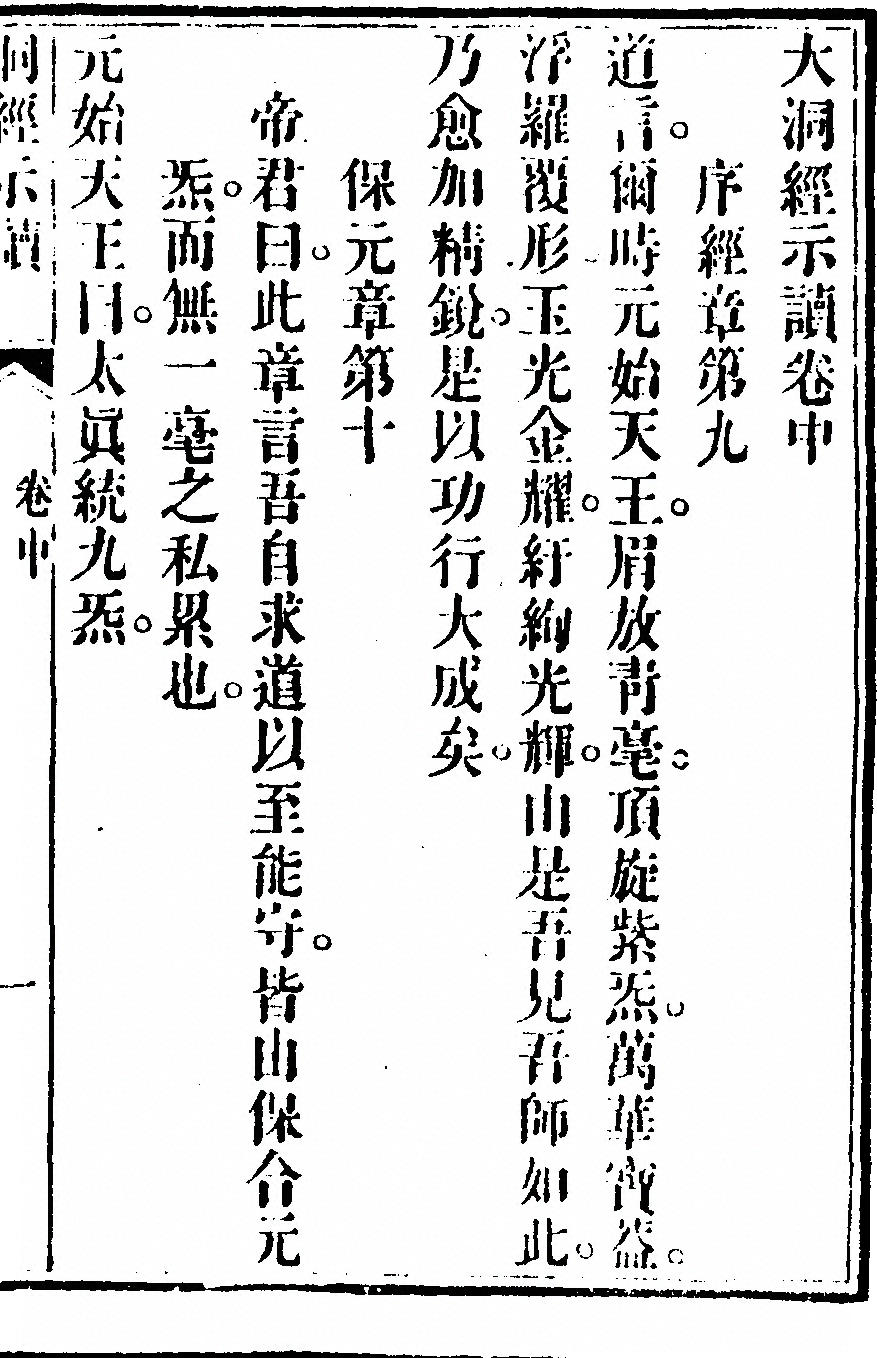 大洞經示讀卷中
序經章第九
道言。爾時元始天王。眉放靑毫。頂旋紫炁。萬華寶蓋。
浮羅覆形玉光金耀。紆絢光輝。由是吾見吾師如此。
乃愈加精銳。是以功行大成矣。
保元章第十
帝君曰。此章言吾自求道以至能守。皆由保合元
炁。而無一毫之私累也。
元始天王曰。太眞統九炁。
洞經示讀
卷中
一